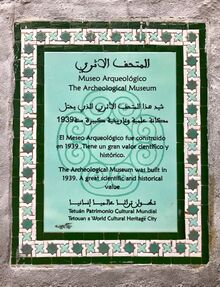 المتحف الأثري
Museo Arqueológico
The Archeological Museum
شيد هذا المتحف الأثري الذي يحتل
مكانة علمية وتاريخية كبيرة سنة 1939
El Meseo Arqueológico fue construido
en 1939. Tiene un gran valor científico y
histórico.
The Archeological Museum was built in
1939. A great scientific and historical
value
تطوان تراثا عالميا إنسانيا
Tetuán Patrimonio Cultural Mundial
Tetouan a World Cultural Heritage City